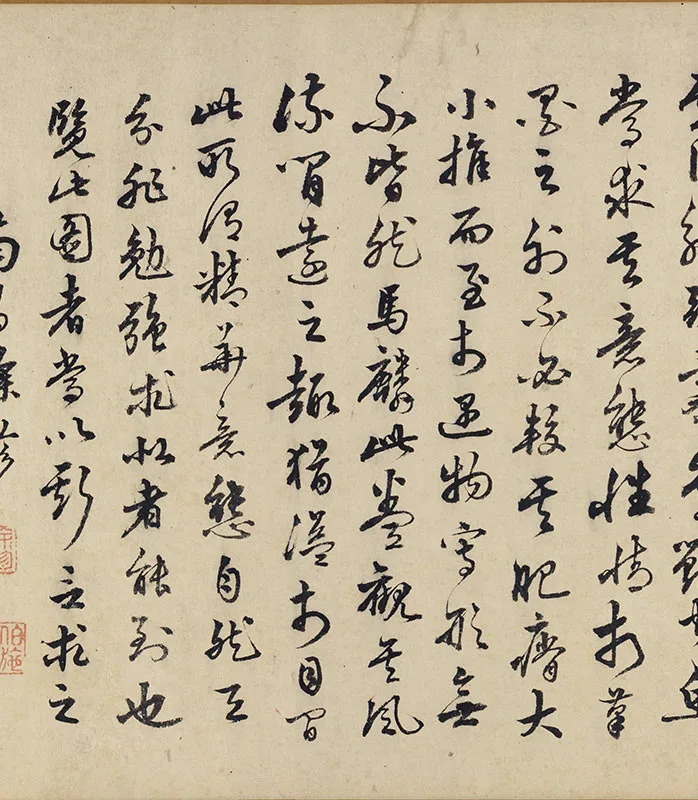 當求其意態性情於筆
墨之外不必較其肥瘠大
小推而至於遇物寫形無
不皆然馬麟此卷觀其風
流閒遠之趣猶溢於目間
此所謂精華意態自然天
分非勉強求似者能到也
覽此圖者當以斯言求之